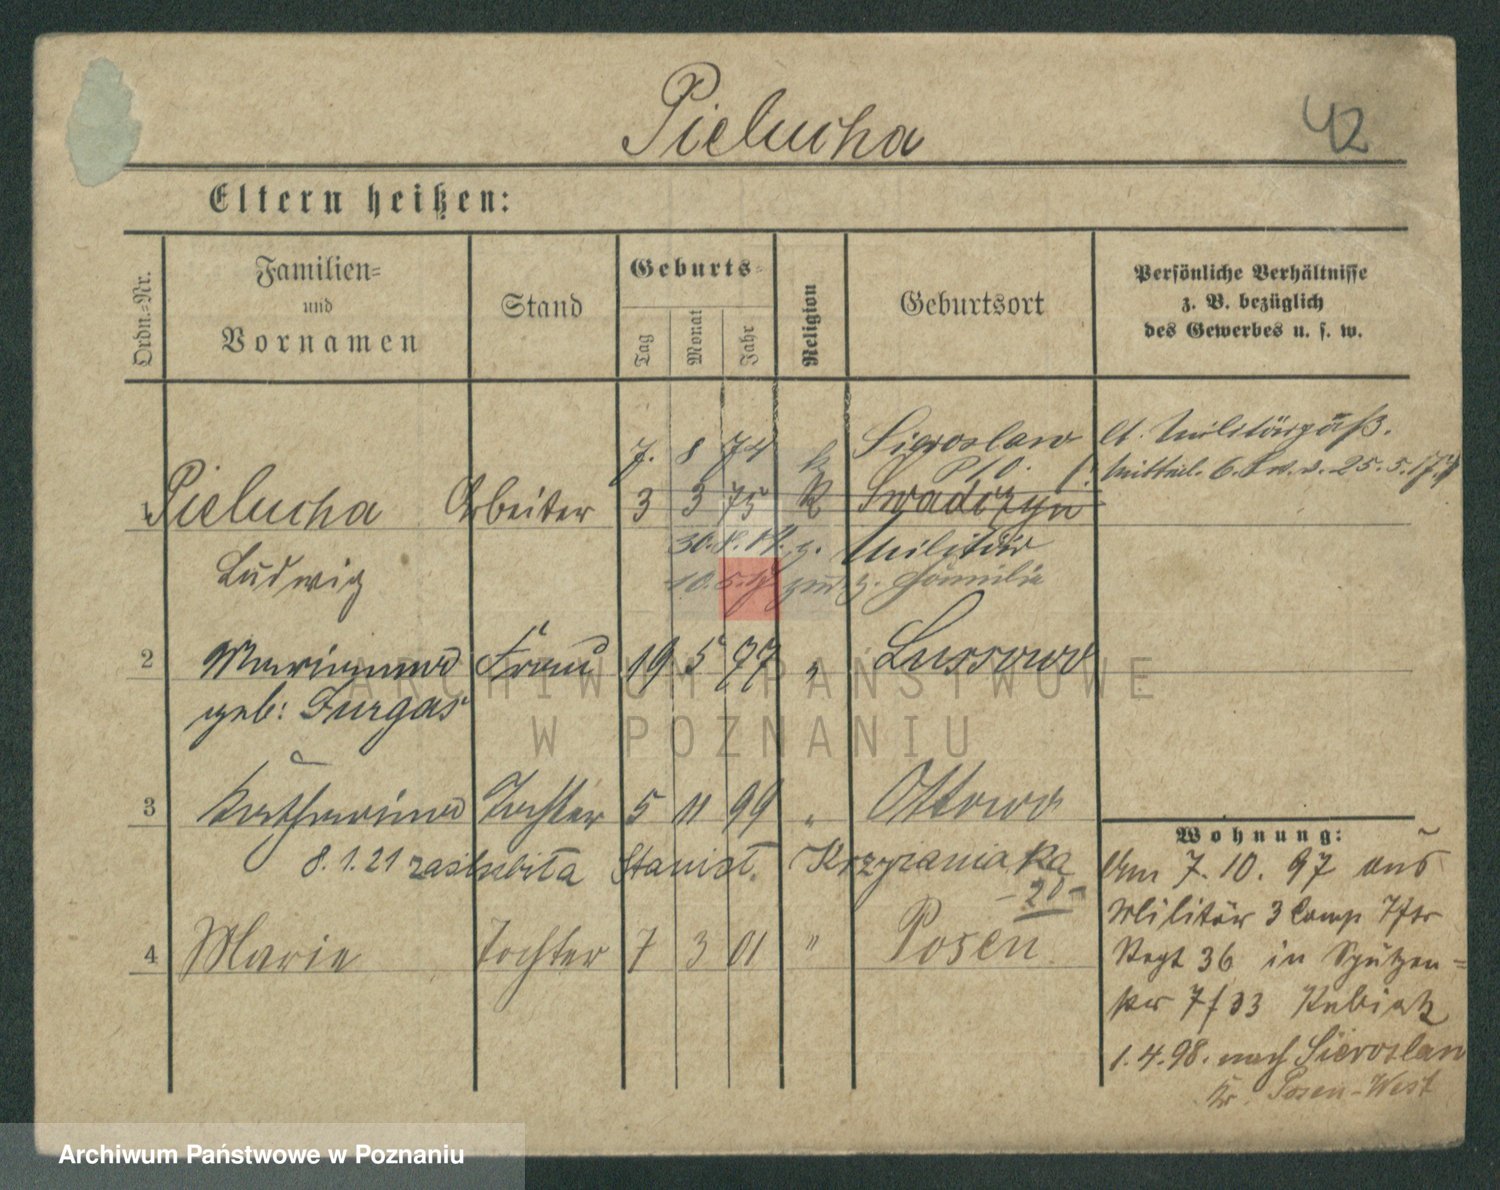 Pielucha
42
Eltern heißen:
Ordn.=Nr.
Familien=
und
Vornamen
Stand
Geburts=
Tag
Monat
Jahr
Religion
Geburtsort
Persönliche Verhältnisse
z. B. bezüglich
des Gewerbes u. s. w.
7. 8 74 k Sieroslaw lt. Militärpaß.
Mitteil. 6. 25.5.17
1 Pielucha Arbeiter 3 3 75 k Swadczyn
30.8.14. z. Militär
Ludwig 10. z. Familie
2 Marianna Frau 19 5 77 " Lussowo
geb: Furgas
3 Katharina Tochter 5 11 99 " Ottowo
8.1.21 zaslubiła Stanisł. Krzyżaniaka
- 20 -
4 Marie Tochter 7 3 01 " Posen
Wohnung:
Am 7.10.97 aus
Militär 3 Comp
Regt 36 in
7/33 Kubiak
1.4.98. nach Sieroslaw
Kr. Posen-West
ARCHIWUM PAŃSTWOWE
W POZNANIU
Archiwum Państwowe w Poznaniu